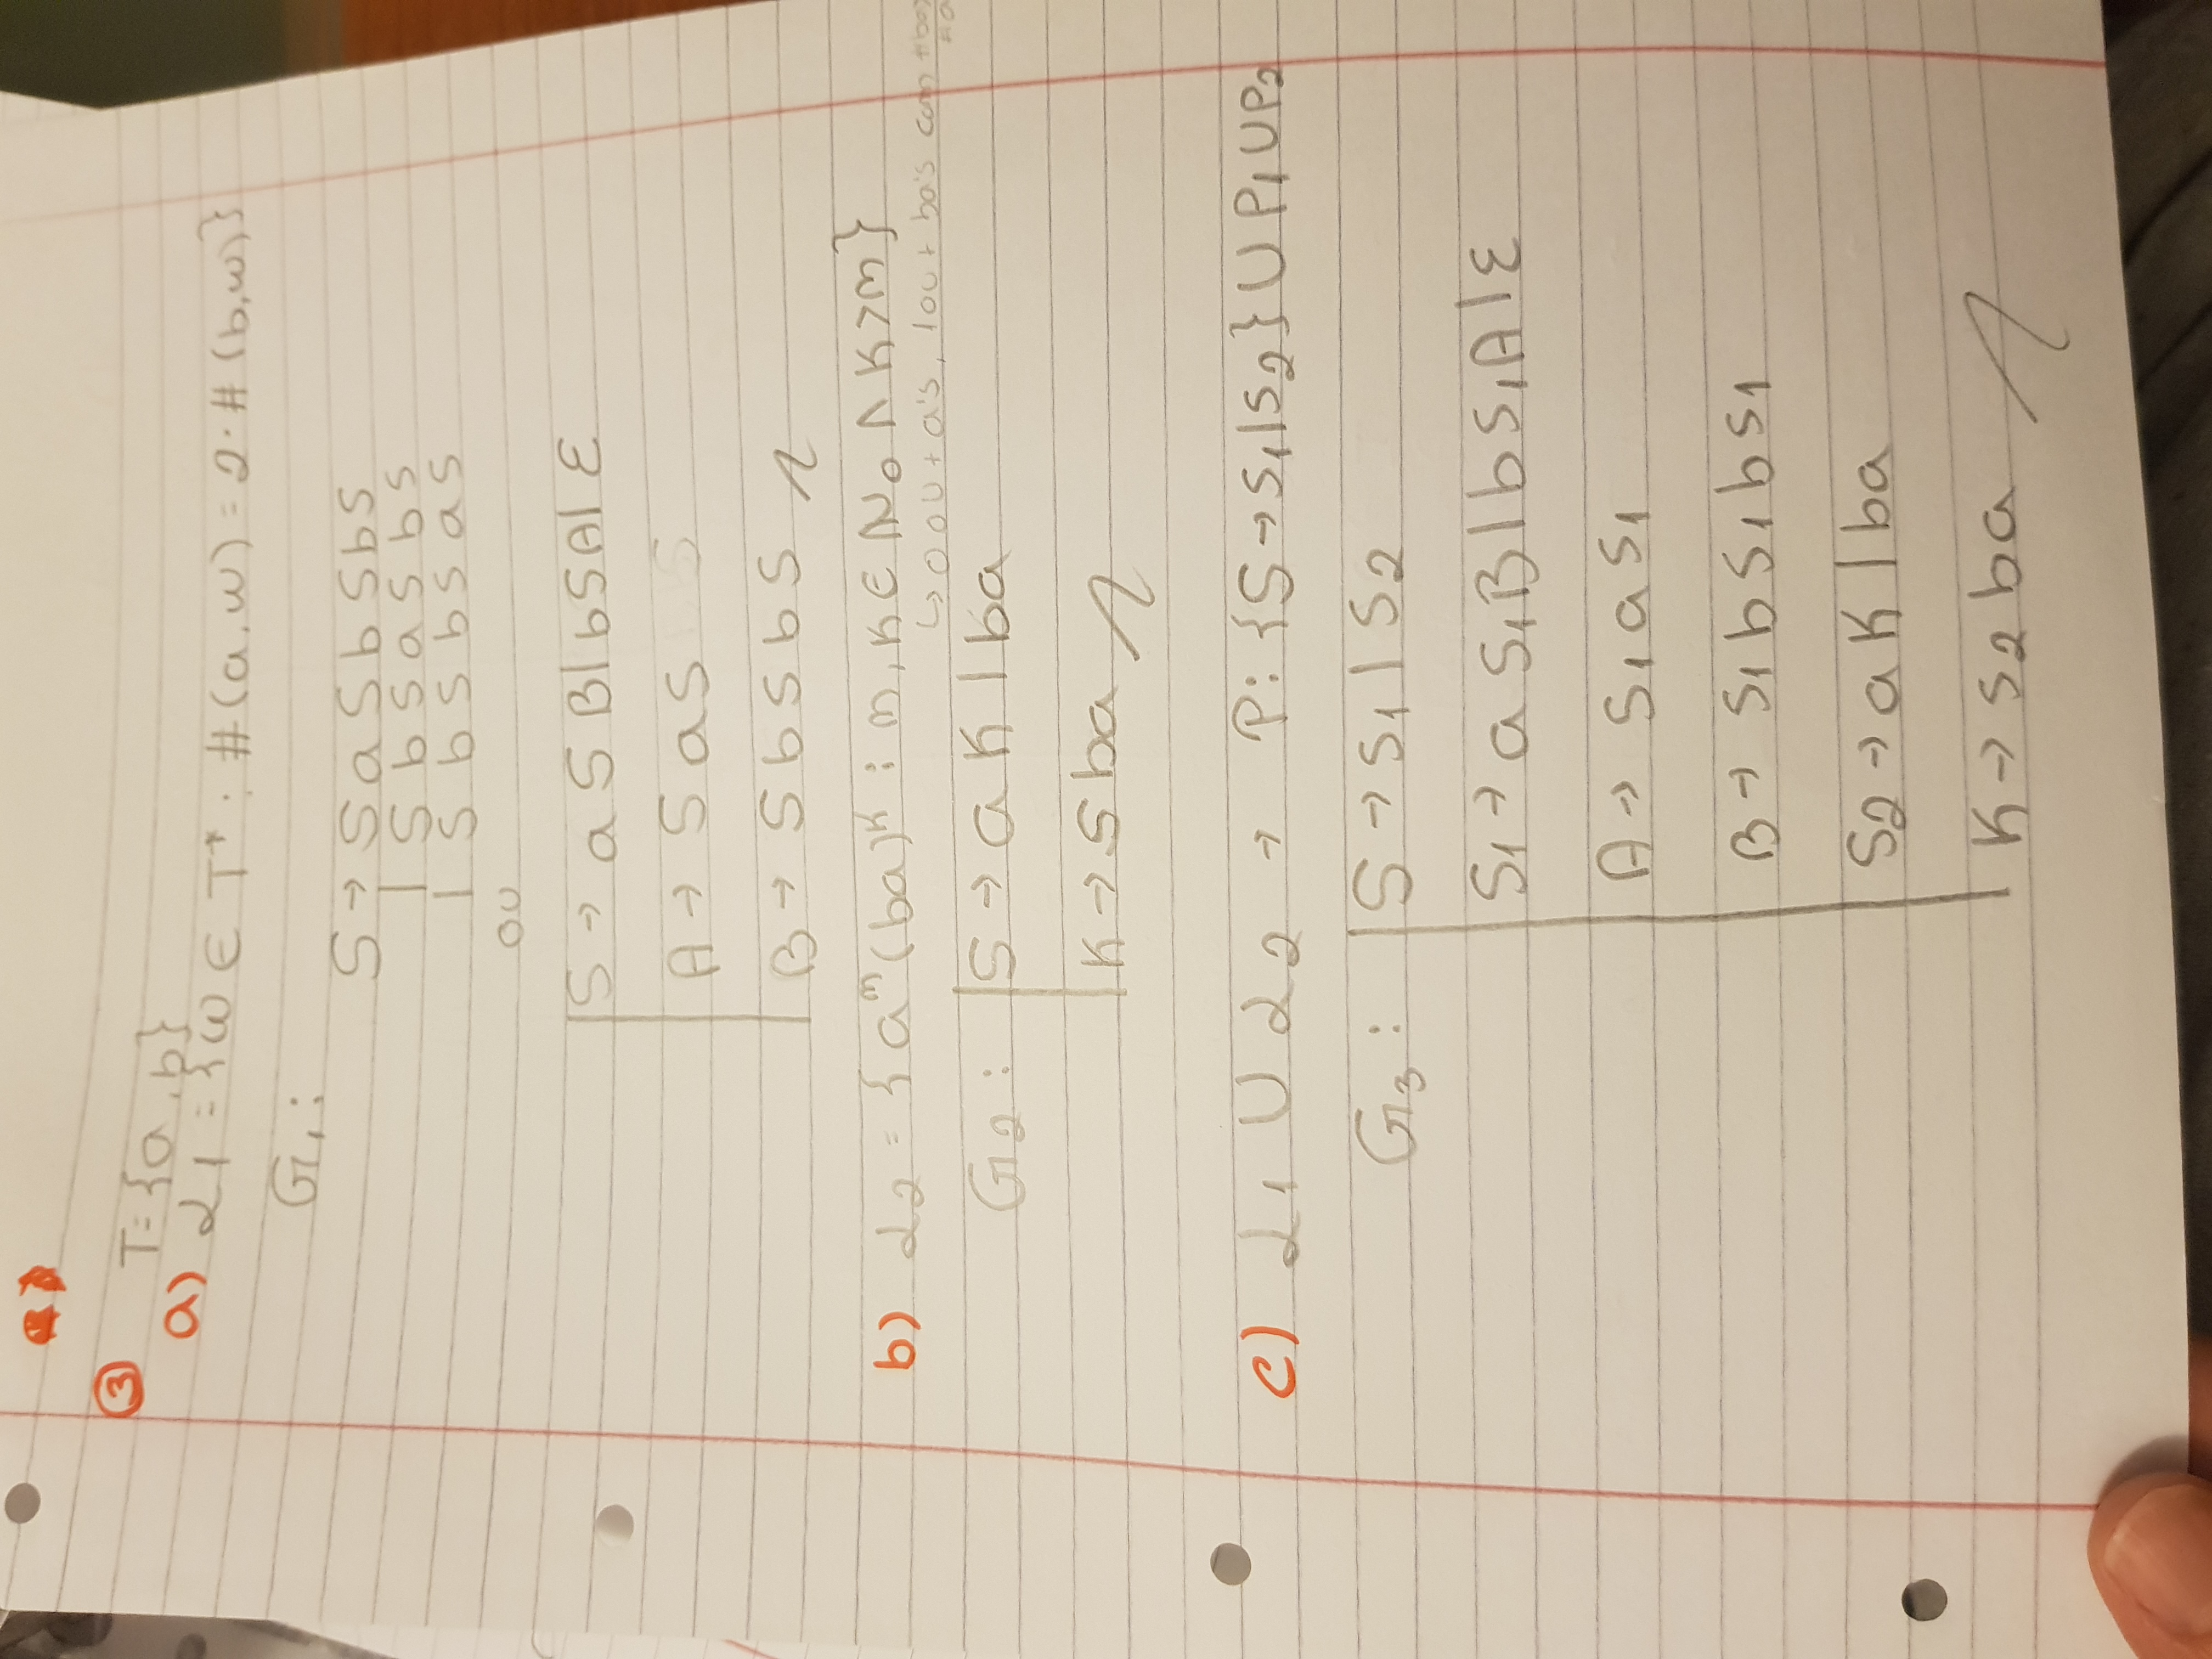 ③
T={a,b}
a) L1 = {w ∈ T* : #(a,w) = 2·#(b,w)}
G1:
S → S a S b S b S
| S b S a S b S
| S b S b S a S
ou
S → a S B | b S A | ε
A → S a S
B → S b S b S
b) L2 = {a^m (ba)^K : m, K ∈ N0 ∧ K > m}
↳ 0 ou + a's, 1 ou + ba's com
G2: S → a K | ba
K → S ba
c) L1 ∪ L2 → P: {S → S1 | S2} ∪ P1 ∪ P2
G3: S → S1 | S2
S1 → a S1 B | b S1 A | ε
A → S1 a S1
B → S1 b S1 b S1
S2 → a K | ba
K → S2 ba